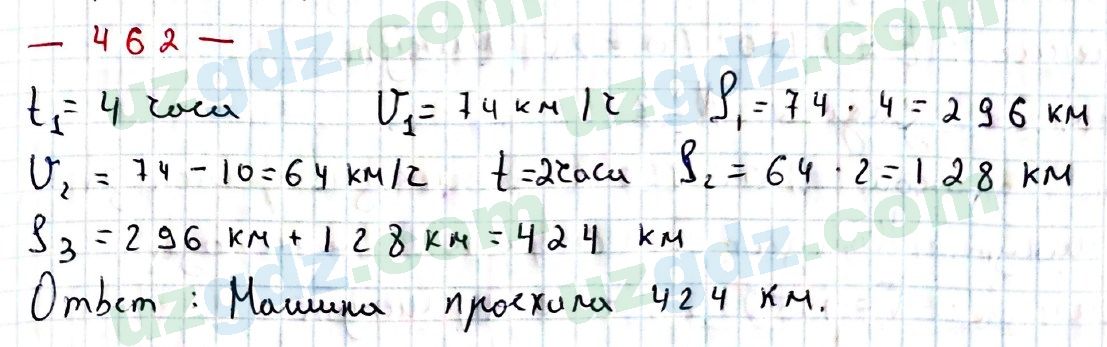 — 462 —
t₁ = 4 часа V₁ = 74 км/ч S₁ = 74 · 4 = 296 км
V₂ = 74 - 10 = 64 км/ч t = 2 часа S₂ = 64 · 2 = 128 км
S₃ = 296 км + 128 км = 424 км
Ответ : Машина проехала 424 км.
uzgdz.com